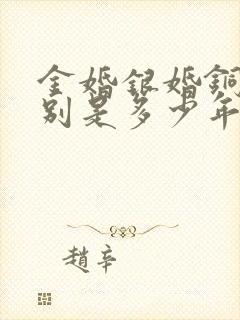 金婚銀婚銅
別是多少年
趙辛